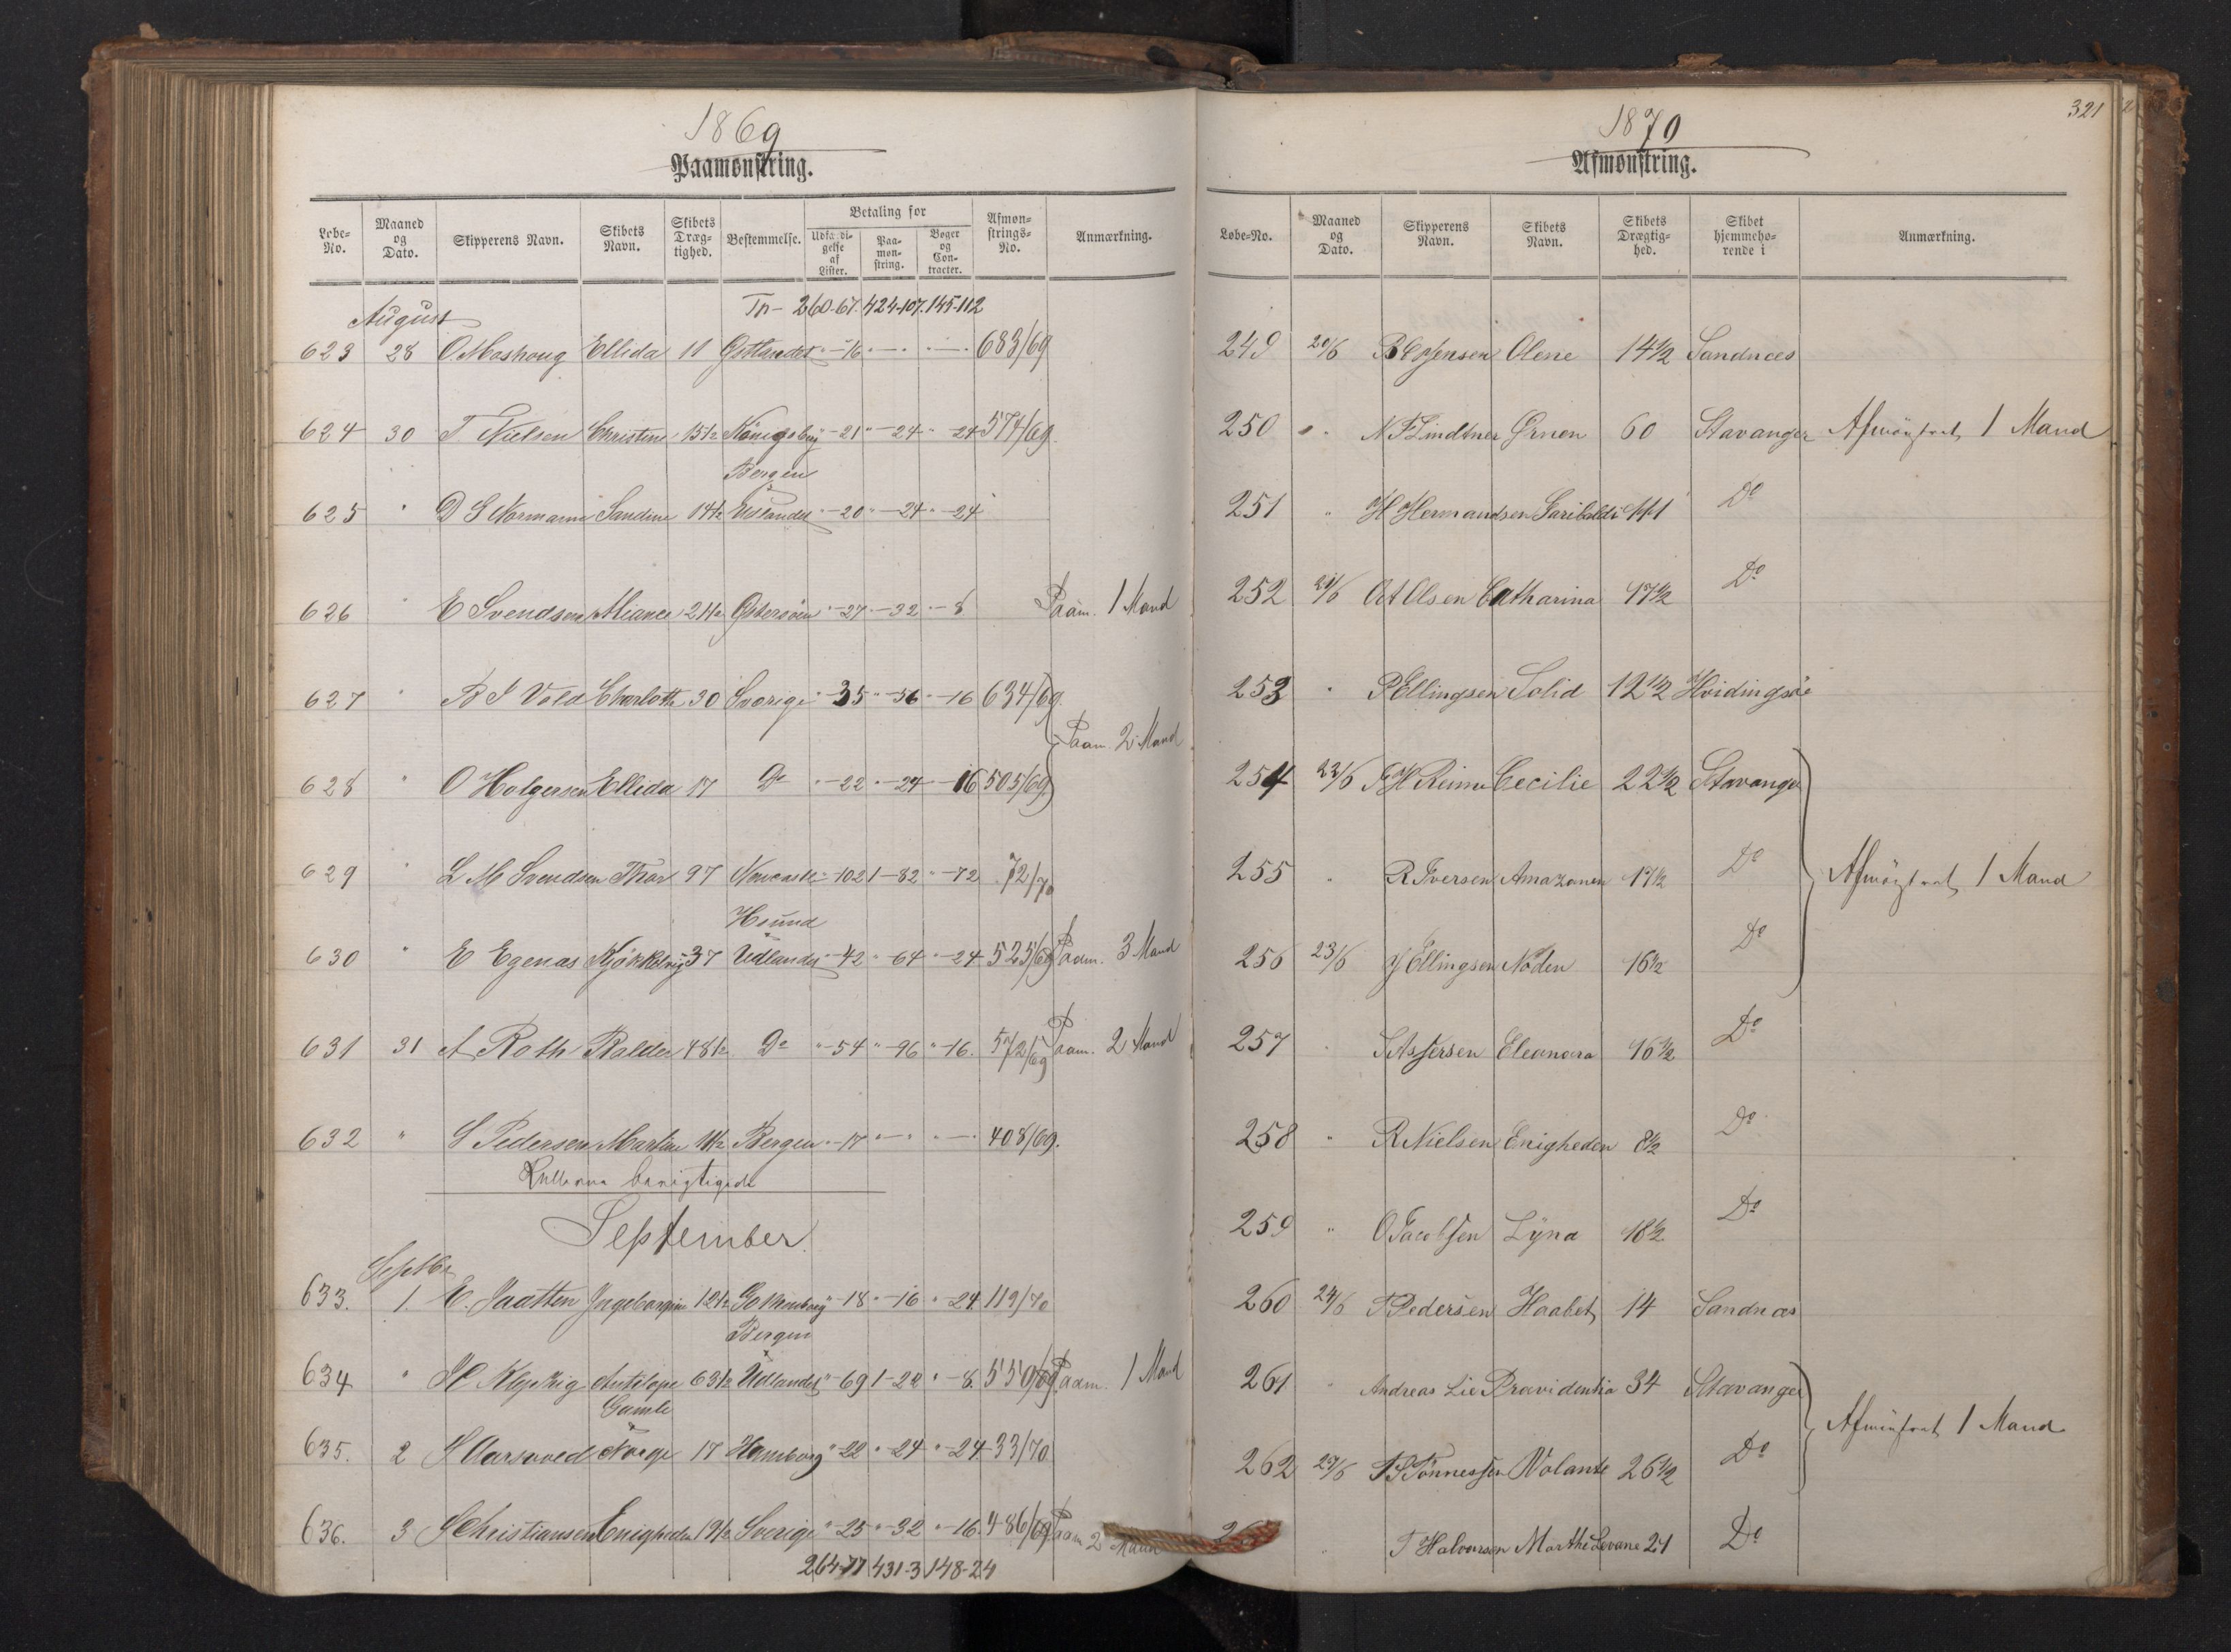 1869
Paamønstring.
Løbe-No. Maaned og Dato. Skipperens Navn. Skibets Navn. Skibets Dræg-tighed. Bestemmelse. Betaling for Udfærdi-gelse af Lister. Paa-møn-string. Bøger og Con-tracter. Afmøn-strings-No. Anmærkning.
Tr- 260-67. 424-107. 145-112
August
623 28 O. Moshoug Ellida 11 Østlandet " - 16 " - " - 683/69
624 30 T Nielsen Christine 15 1/2 Königsberg " - 21 " - 24 " - 24 574/69
Bergen
625 " D S Normann Sandine 14 1/2 Udlandet " - 20 " - 24 " - 24
626 " E Svendsen Aliance 21 1/2 Østersöen " - 27 " - 32 " - 8 Paam. 1 Mand
627 " B I Vold Charlotte 30 Sverige " - 35 " - 56 " - 16 634/69
Paam. 2 Mand
628 " O Holgersen Ellida 17 Do " - 22 " - 24 " - 16 505/69
629 " L M Svendsen Thor 97 Newcastle " - 102 1 - 82 " - 72 72/70
Hound
630 " E Egenas Kjökkelvig 37 Udlandet " - 42 " - 64 " - 24 525/69 Paam. 3 Mand
631 31 A Roth Balder 48 1/2 Do " - 54 " - 96 " - 16. 572/69 Paam. 2 Mand
632 " S Pedersen Martin 11 1/2 Bergen " - 17 " - " " - 408/69.
September
Septbr
633. 1. E. Jaatten Ingeborgine 12 1/2 Gothenborg " - 18 " - 16 " - 24 119/70
Bergen
634 " Antilope 63 1/2 Udlandet " - 69 1 - 22 " - 8. 550/69 Paam. 1 Mand
Gamle
635. 2 Aarsvoed Norge 17 Hamborg " - 22 " - 24 " - 24 33/70
636. 3 S Christiansen Enigheden 19 1/2 Sverige " - 25 " - 32 " - 16. 486/69 Paam 2 Mand
264-77 431-3 148-24
1870
321
Afmønstring.
Løbe-No. Maaned og Dato. Skipperens Navn. Skibets Navn. Skibets Drægtig-hed. Skibet hjemmehø-rende i Anmærkning.
249 20/6 Olene 14 1/2 Sandnæs
250 " " N F Lindtner Ørnen 60 Stavanger Afmönstret 1 Mand
251 " H Hermandsen Garibaldi 111 Do
252 21/6 Olsen Catharina 17 1/2 Do
253 " P Ellingsen Solid 12 1/2 Hvidingsöe
254 22/6 Reime Cecilie 22 1/2 Stavanger
255 " R Iversen Amazonen 17 1/2 Do Afmönstret 1 Mand
256 23/6 J Ellingsen Nöden 16 1/2 Do
257 " Eleonora 16 1/2 Do
258 " R Nielsen Enigheden 8 1/2 Do
259 " O Jacobsen Lyna 18 1/2 Do
260 24/6 T Pedersen Haabet 14 Sandnæs
261 " Andreas Lie Providentia 34 Stavanger
Afmönstret 1 Mand
262 27/6 Tönnessen Volante 26 1/2 Do
" T Halvorsen Marthe Levane 21 Do